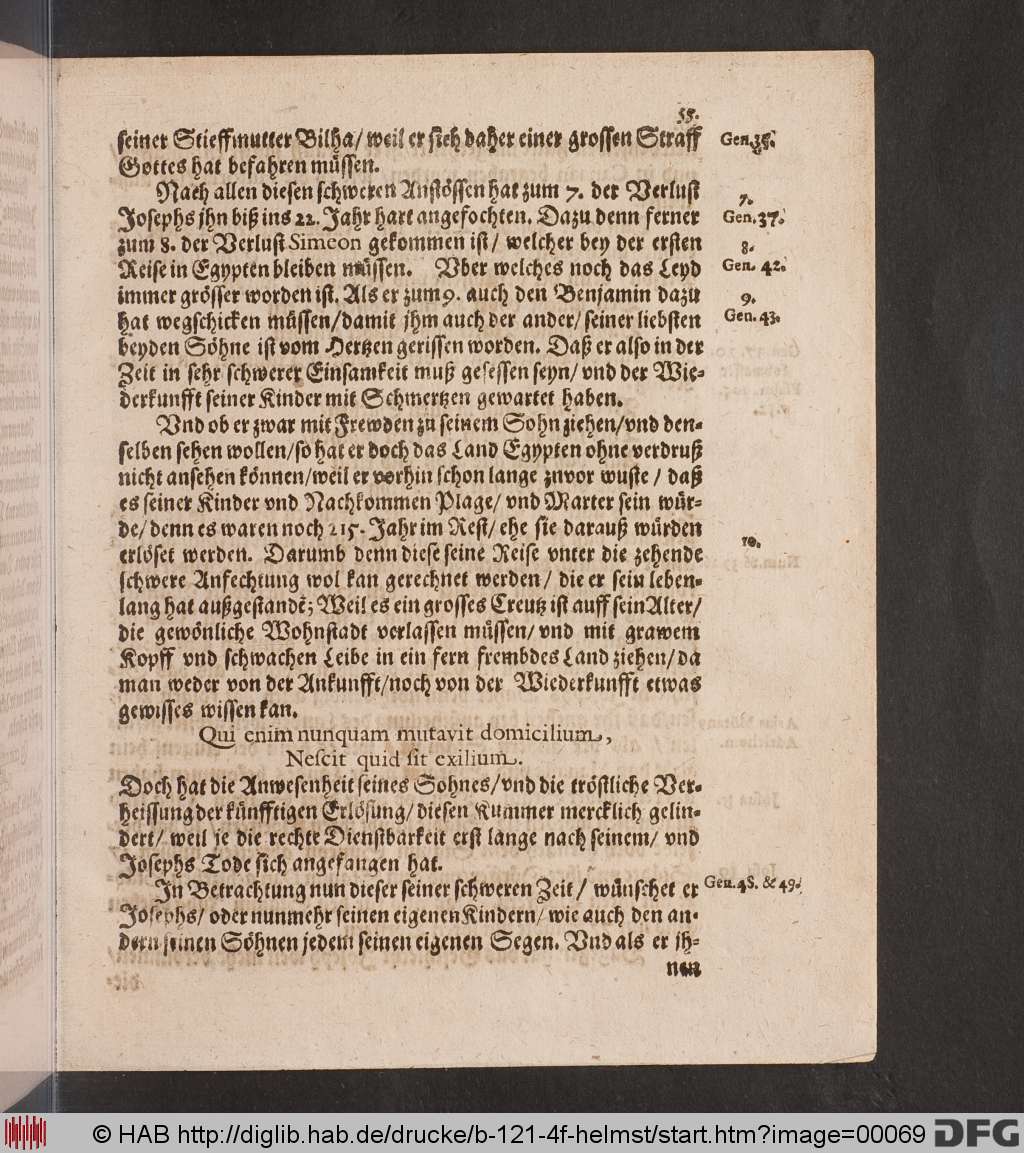 55.
seiner Stieffmutter Bilha/ weil er sich daher einer grossen Straff
Gen. 35.
Gottes hat befahren müssen.
Nach allen diesen schweren Anstössen hat zum 7. der Verlust
7.
Josephs jhn biß ins 22. Jahr hart angefochten. Dazu denn ferner
Gen. 37.
zum 8. der Verlust Simeon gekommen ist/ welcher bey der ersten
8.
Reise in Egypten bleiben müssen. Vber welches noch das Leyd
Gen. 42.
immer grösser worden ist. Als er zum 9. auch den Benjamin dazu
9.
hat wegschicken müssen/ damit jhm auch der ander/ seiner liebsten
Gen. 43.
beyden Söhne ist vom Hertzen gerissen worden. Daß er also in der
Zeit in sehr schwerer Einsamkeit muß gesessen seyn/ vnd der Wie-
derkunfft seiner Kinder mit Schmertzen gewartet haben.
Vnd ob er zwar mit Frewden zu seinem Sohn ziehen/ vnd den-
selben sehen wollen/ so hat er doch das Land Egypten ohne verdruß
nicht ansehen können/ weil er vorhin schon lange znvor wuste/ daß
es seiner Kinder vnd Nachkommen Plage/ vnd Marter sein wür-
de/ denn es waren noch 215. Jahr im Rest/ ehe sie darauß würden
erlöset werden. Darumb denn diese seine Reise vnter die zehende
10.
schwere Anfechtung wol kan gerechnet werden/ die er sein leben-
lang hat außgestandē; Weil es ein grosses Creutz ist auff sein Alter/
die gewönliche Wohnstadt verlassen müssen/ vnd mit grawem
Kopff vnd schwachen Leibe in ein fern frembdes Land ziehen/ da
man weder von der Ankunfft/ noch von der Wiederkunfft etwas
gewisses wissen kan.
Qui enim nunquam mutavit domicilium,
Nescit quid sit exilium.
Doch hat die Anwesenheit seines Sohnes/ vnd die tröstliche Ver-
heissung der künfftigen Erlösung/ diesen Kummer mercklich gelin-
dert/ weil je die rechte Dienstbarkeit erst lange nach seinem/ vnd
Josephs Tode sich angefangen hat.
In Betrachtung nun dieser seiner schweren Zeit/ wünschet er
Gen. 48. & 49.
Josephs/ oder nunmehr seinen eigenen Kindern/ wie auch den an-
dern seinen Söhnen jedem seinen eigenen Segen. Vnd als er jh-
nen
© HAB http://diglib.hab.de/drucke/b-121-4f-helmst/start.htm?image=00069 DFG